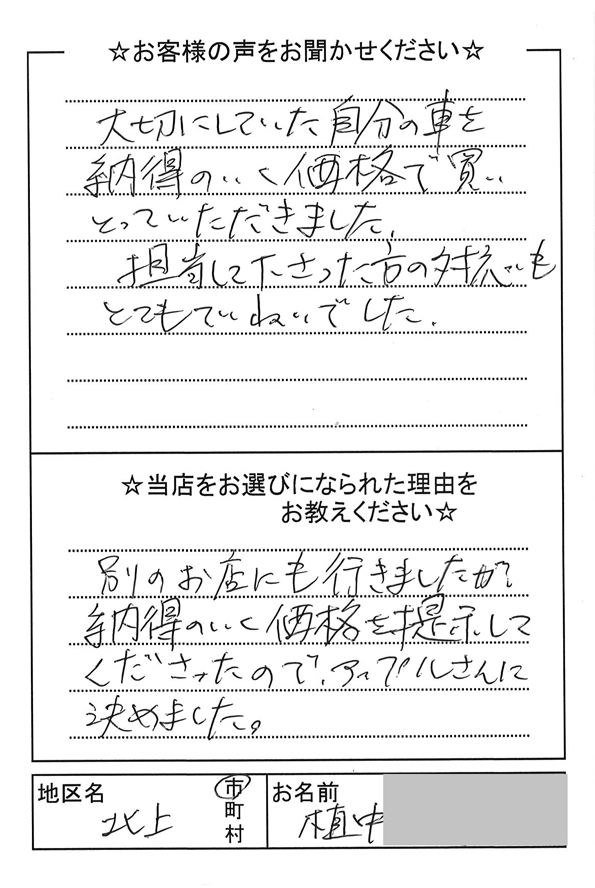 ☆お客様の声をお聞かせください☆
大切にしていた自分の車を
納得のいく価格で買い
とっていただきました。
担当して下さった方の対応も
とてもていねいでした。
☆当店をお選びになられた理由を
お教えください☆
別のお店にも行きましたが
納得のいく価格を提示して
くださったので、アップルさんに
決めました。
地区名 北上 市町村 お名前 植中